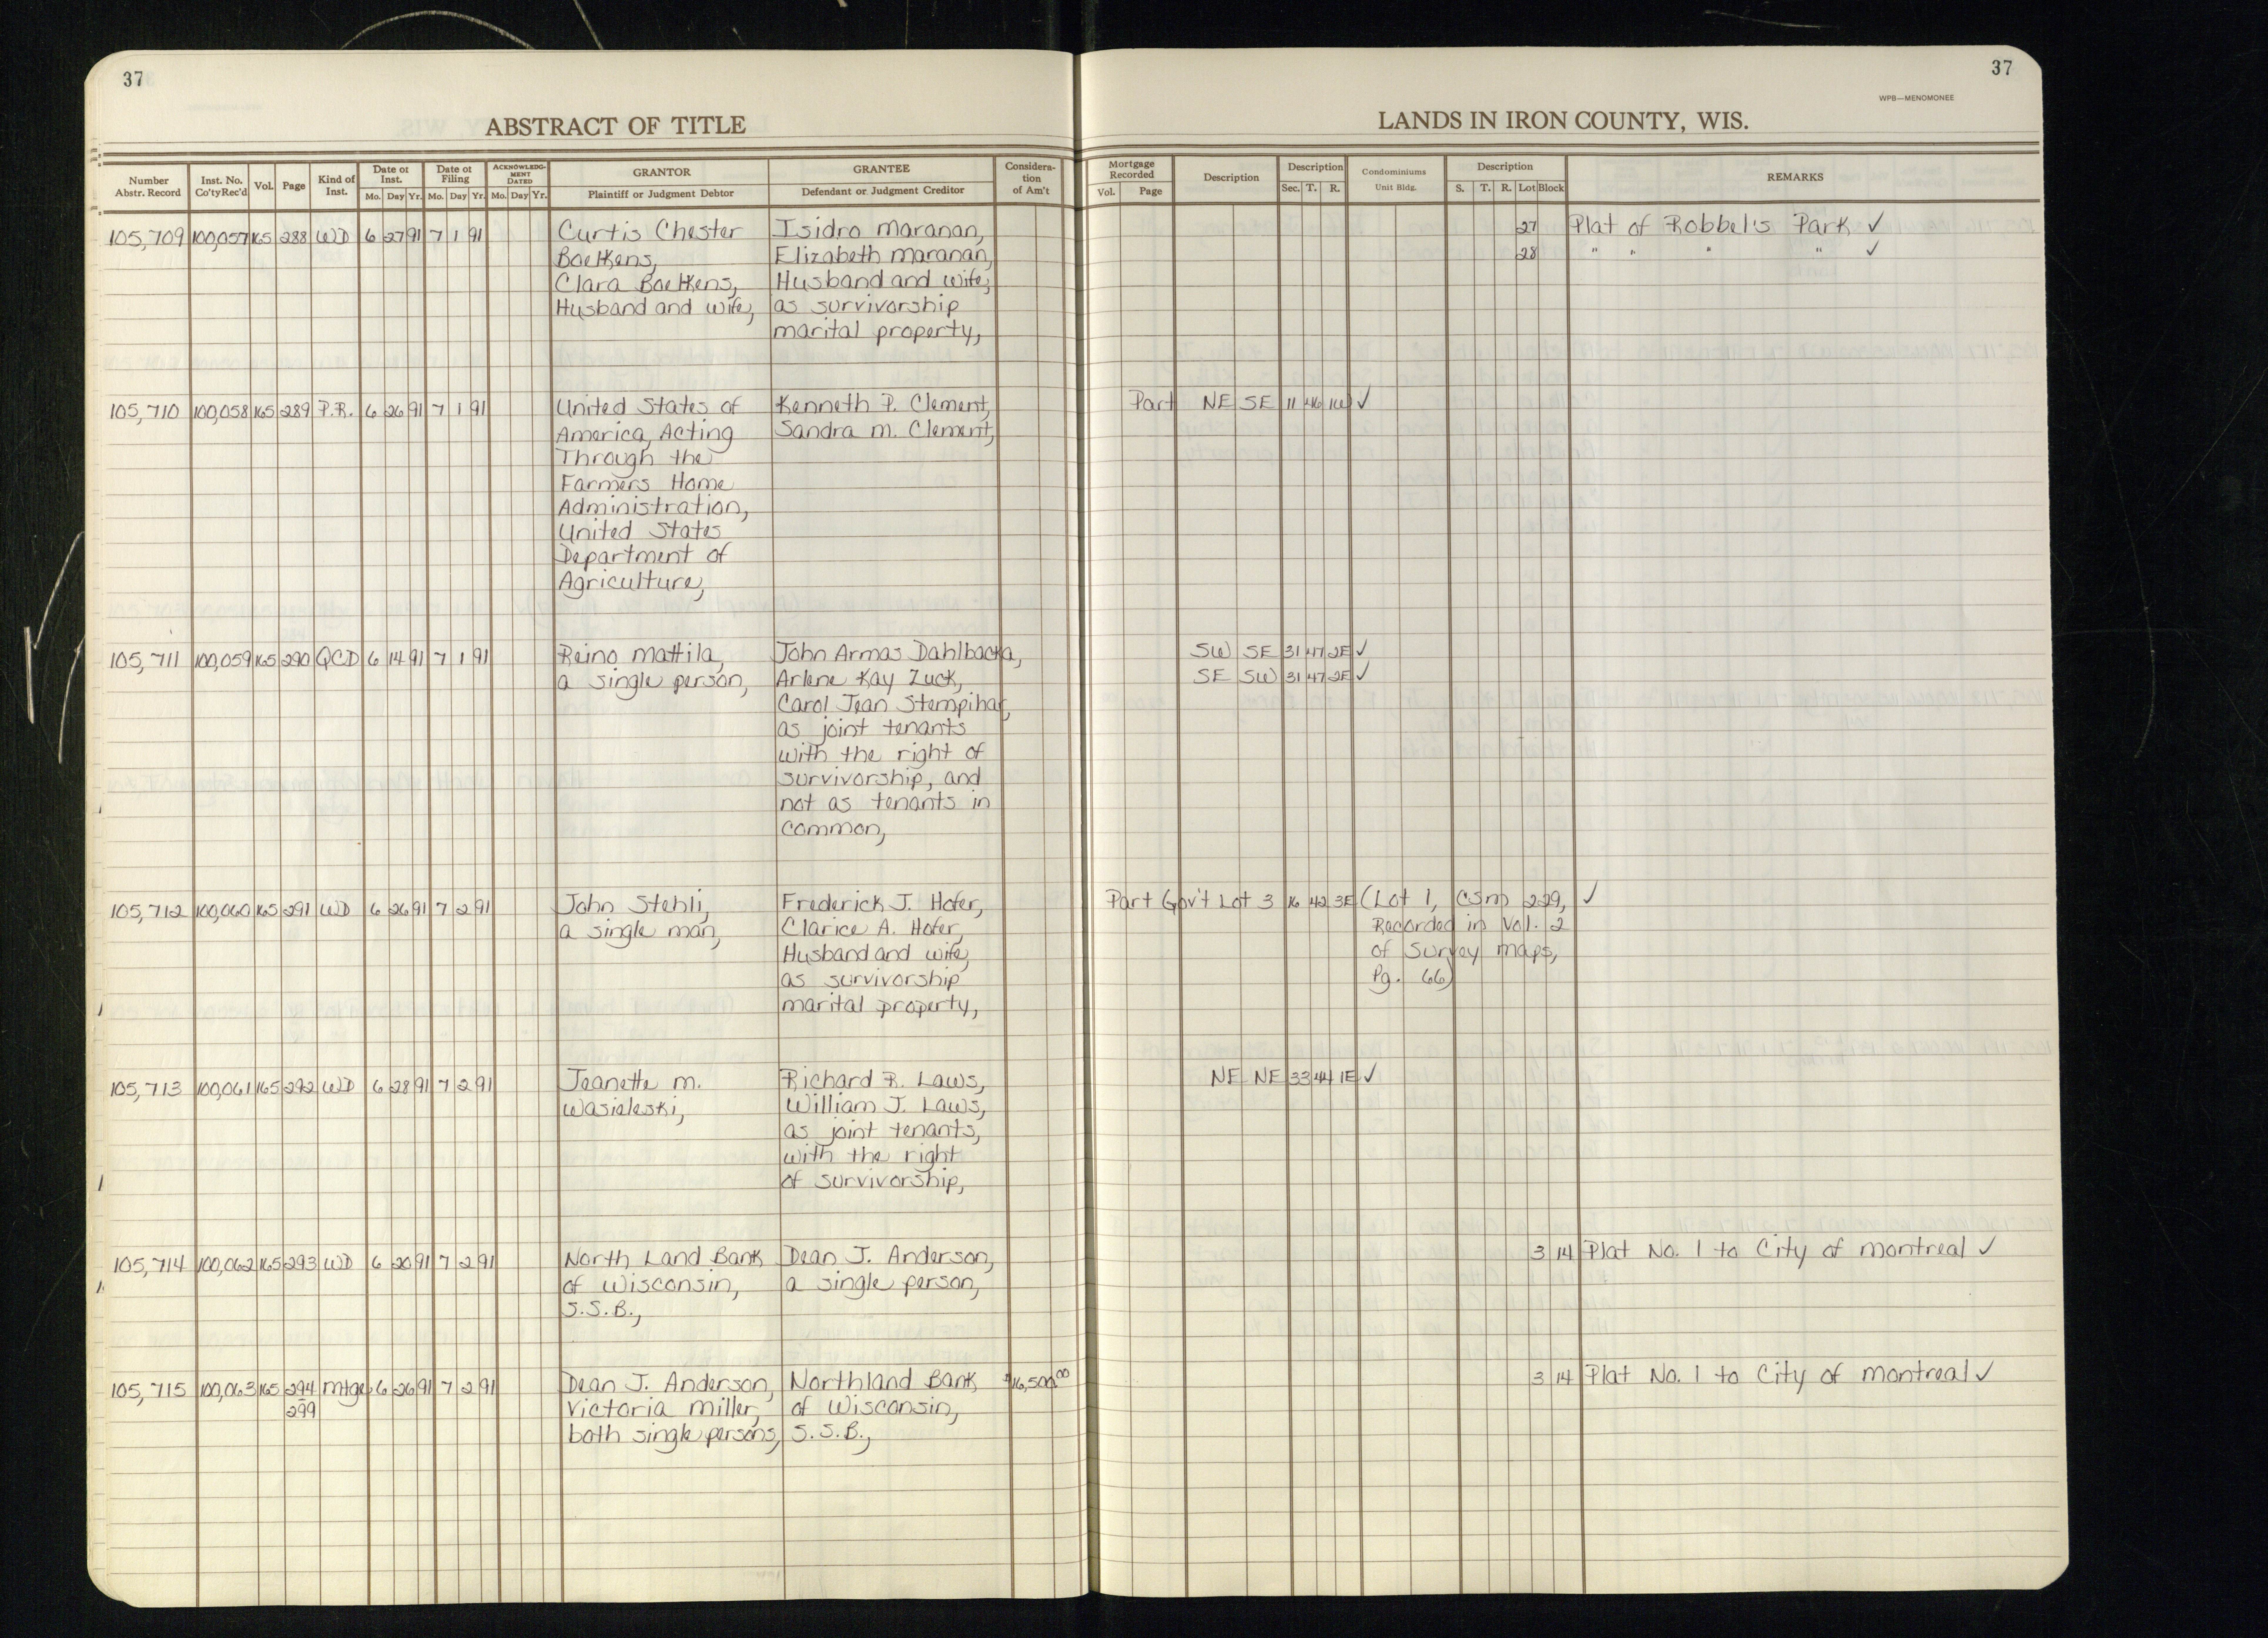 37
ABSTRACT OF TITLE
Number Abstr. Record | Inst. No. Co'ty Rec'd | Vol. | Page | Kind of Inst. | Date of Inst. Mo. Day Yr. | Date of Filing Mo. Day Yr. | ACKNOWLEDGMENT DATED Mo. Day Yr. | GRANTOR Plaintiff or Judgment Debtor | GRANTEE Defendant or Judgment Creditor | Consideration of Am't
105,709 100,057 165 288 WD 6 27 91 7 1 91 Curtis Chester Isidro Maranan,
Boetkens, Elizabeth Maranan,
Clara Boetkens, Husband and wife,
Husband and wife, as survivorship
marital property,
105,710 100,058 165 289 P.R. 6 26 91 7 1 91 United States of Kenneth P. Clement,
America, Acting Sandra M. Clement,
Through the
Farmers Home
Administration,
United States
Department of
Agriculture,
105,711 100,059 165 290 QCD 6 14 91 7 1 91 Reino Mattila, John Armas Dahlbacka,
a single person, Arlene Kay Zuck,
Carol Jean Stempihar,
as joint tenants
with the right of
survivorship, and
not as tenants in
common,
105,712 100,060 165 291 WD 6 26 91 7 2 91 John Stehli, Frederick J. Hofer,
a single man, Clarice A. Hofer,
Husband and wife,
as survivorship
marital property,
105,713 100,061 165 292 WD 6 28 91 7 2 91 Jeanette M. Richard R. Laws,
Wasieleski, William J. Laws,
as joint tenants,
with the right
of survivorship,
105,714 100,062 165 293 WD 6 20 91 7 2 91 North Land Bank Dean J. Anderson,
of Wisconsin, a single person,
S.S.B.,
105,715 100,063 165 294 Mtge 6 26 91 7 2 91 Dean J. Anderson, Northland Bank $16,500.00
299 Victoria Miller, of Wisconsin,
both single persons, S.S.B.,
37
WPB—MENOMONEE
LANDS IN IRON COUNTY, WIS.
Mortgage Recorded Vol. Page | Description | Description Sec. T. R. | Condominiums Unit Bldg. | Description S. T. R. Lot Block | REMARKS
27 Plat of Robbel's Park ✓
28 " " " " ✓
Part NE SE 11 46 1W ✓
SW SE 31 47 2E ✓
SE SW 31 47 2E ✓
Part Gov't Lot 3 16 42 3E (Lot 1, CSM 229, ✓
Recorded in Vol. 2
of Survey Maps,
Pg. 66)
NE NE 33 44 1E ✓
3 14 Plat No. 1 to City of Montreal ✓
3 14 Plat No. 1 to City of Montreal ✓